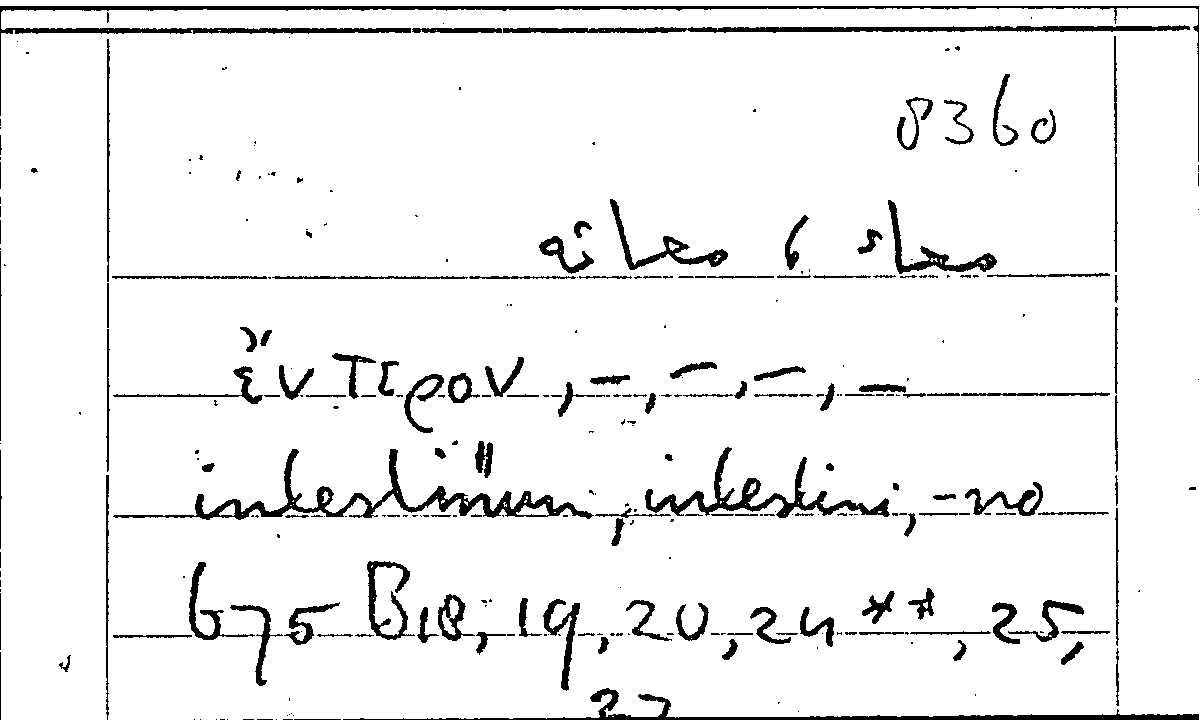 8360
معاء ، معائه
ἔντερον, –, –, –, –
intestinum, intestini, -no
675 B18, 19, 20, 24**, 25,
27